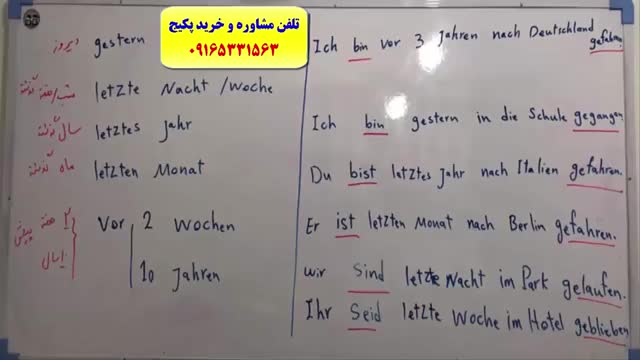 تلفن مشاوره و خرید پکیج
۰۹۱۶۵۳۳۱۵۶۳
gestern دیروز
letzte Nacht /Woche شب/هفته گذشته
letztes Jahr سال گذشته
letzten Monat ماه گذشته
Vor 2 Wochen ۲ هفته پیش
10 Jahren ۱۰ سال
Ich bin vor 3 Jahren nach Deutschland gefahren.
Ich bin gestern in die Schule gegangen.
Du bist letztes Jahr nach Italien gefahren.
Er ist letzten Monat nach Berlin gefahren.
wir sind letzte Nacht im Park gelaufen.
Ihr seid letzte Woche im Hotel geblieben